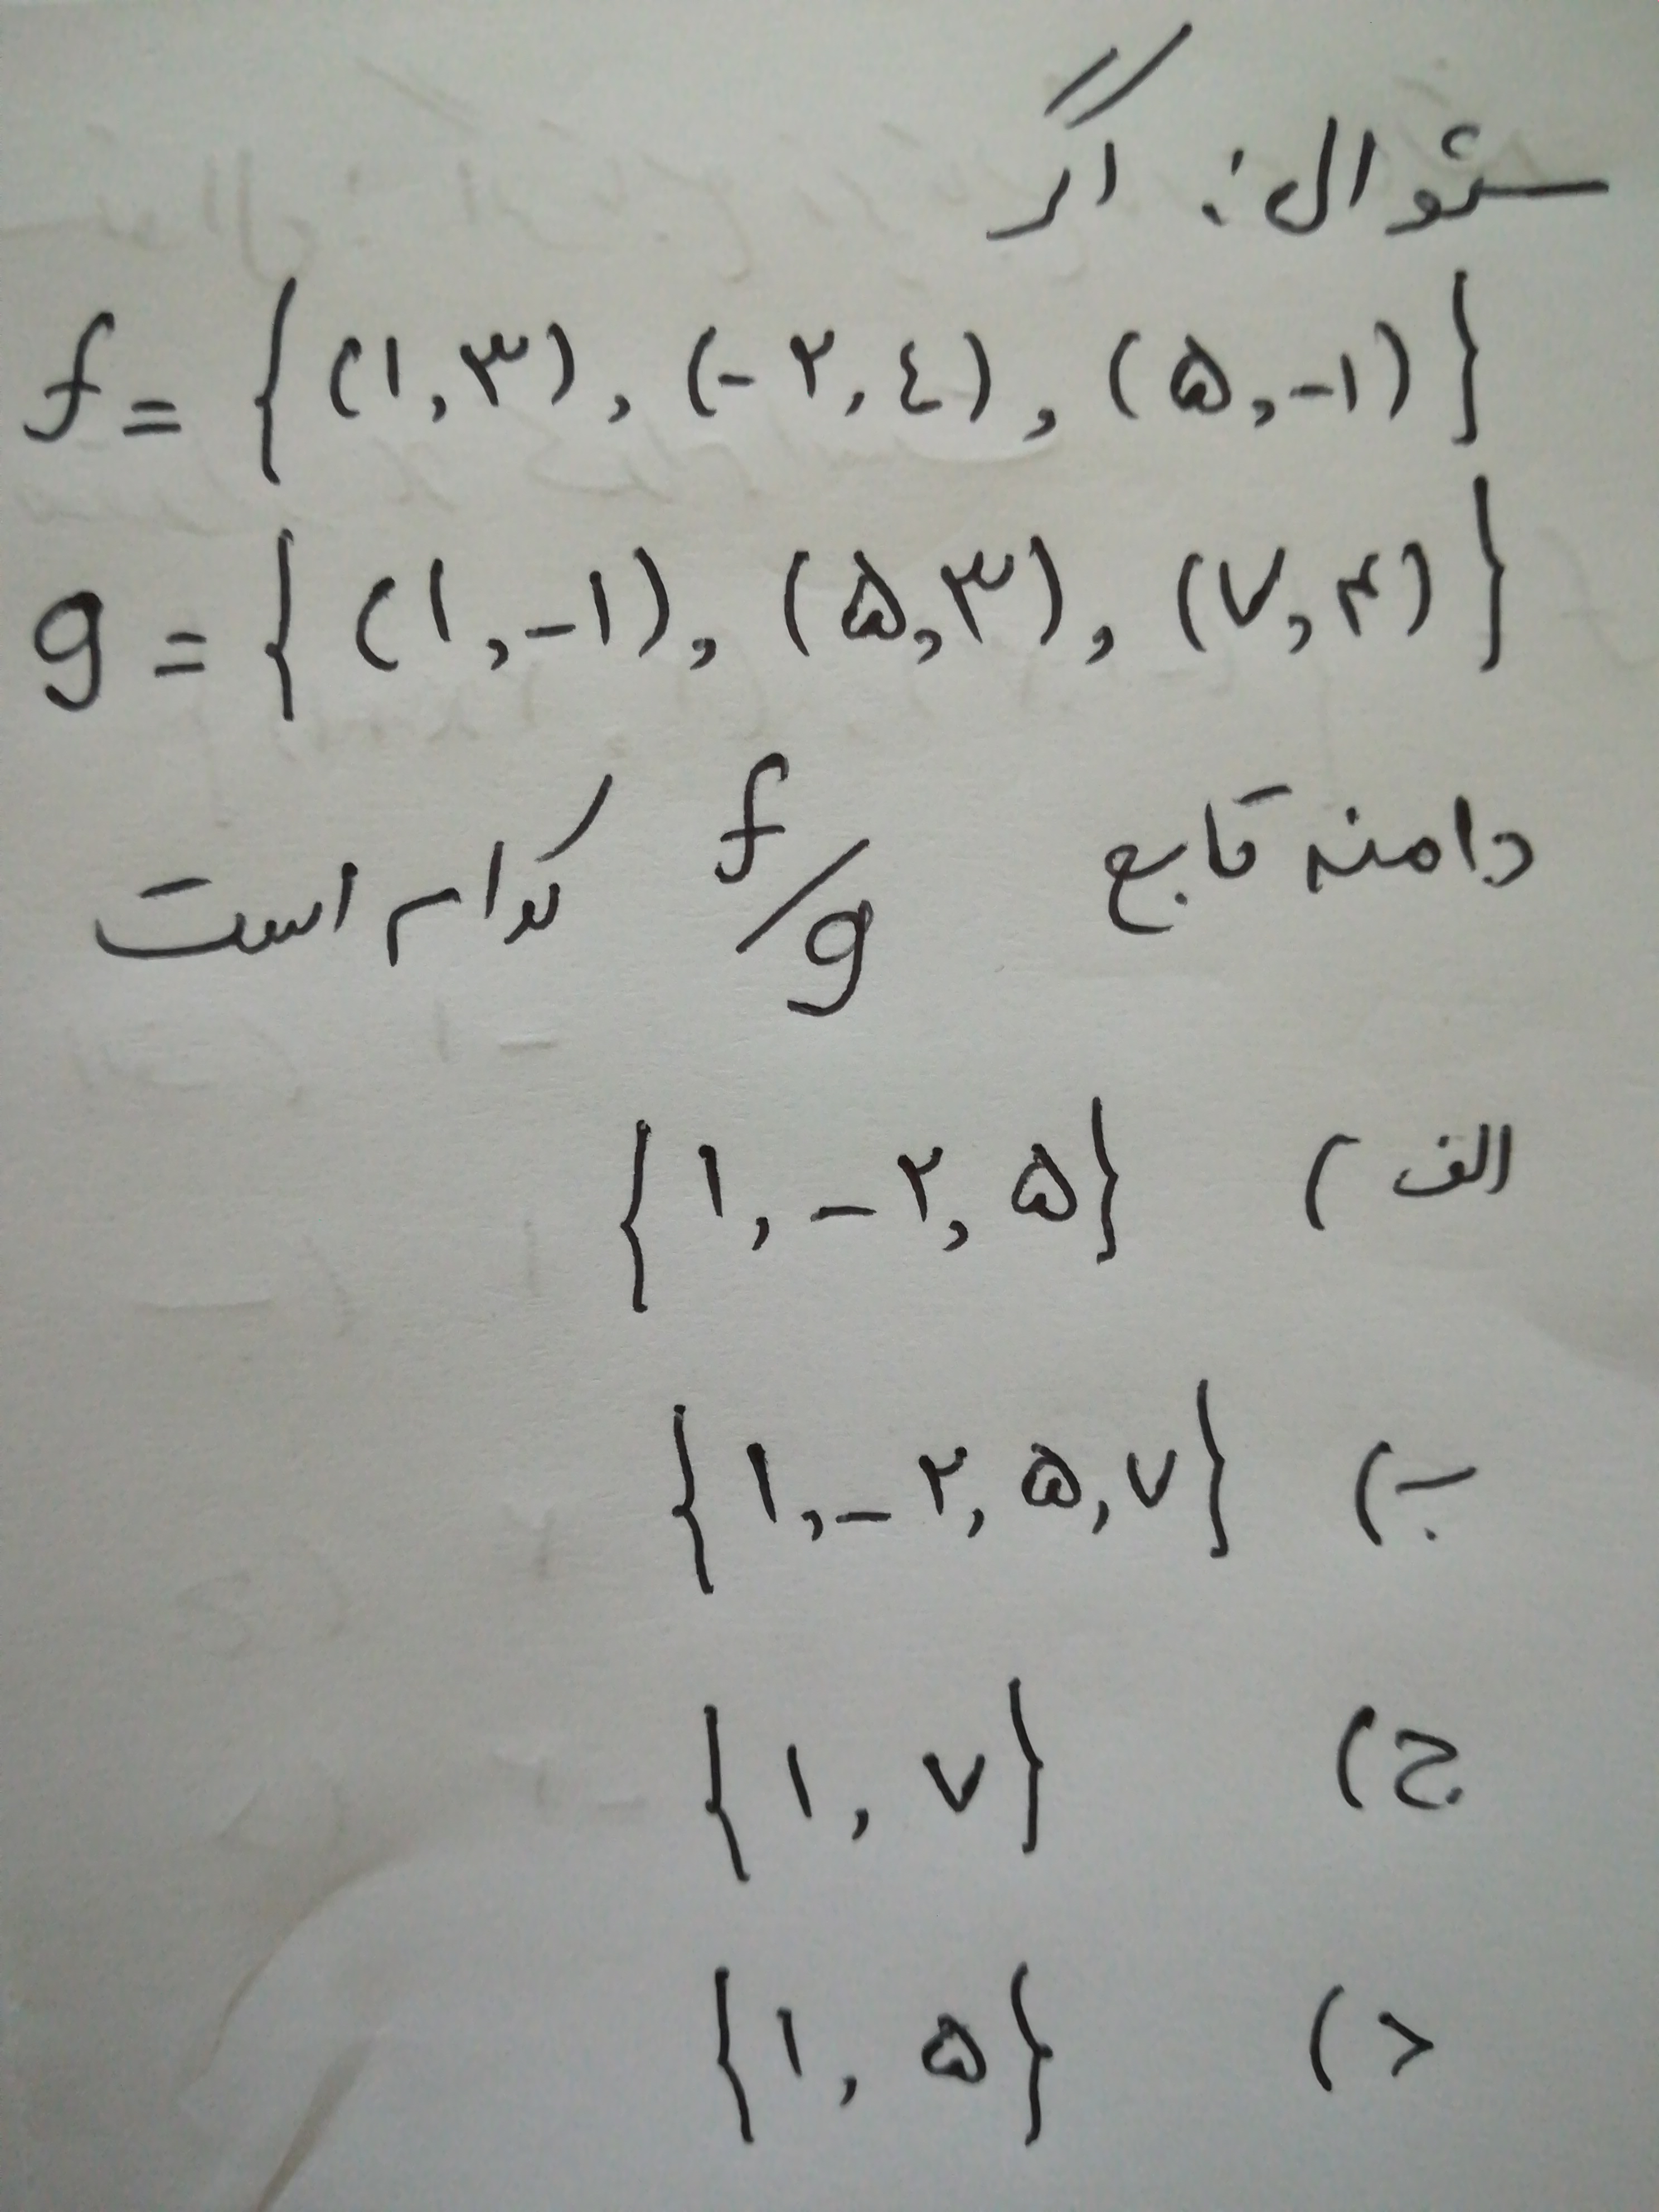 سئوال: اگر
f = { (۱,۳) , (-۲,٤) , (۵,-۱) }
g = { (۱,-۱) , (۵,۳) , (۷,۴) }
دامنه تابع f/g کدام است
الف) {۱, -۲, ۵}
ب) {۱, -۲, ۵, ۷}
ج) {۱, ۷}
د) {۱, ۵}